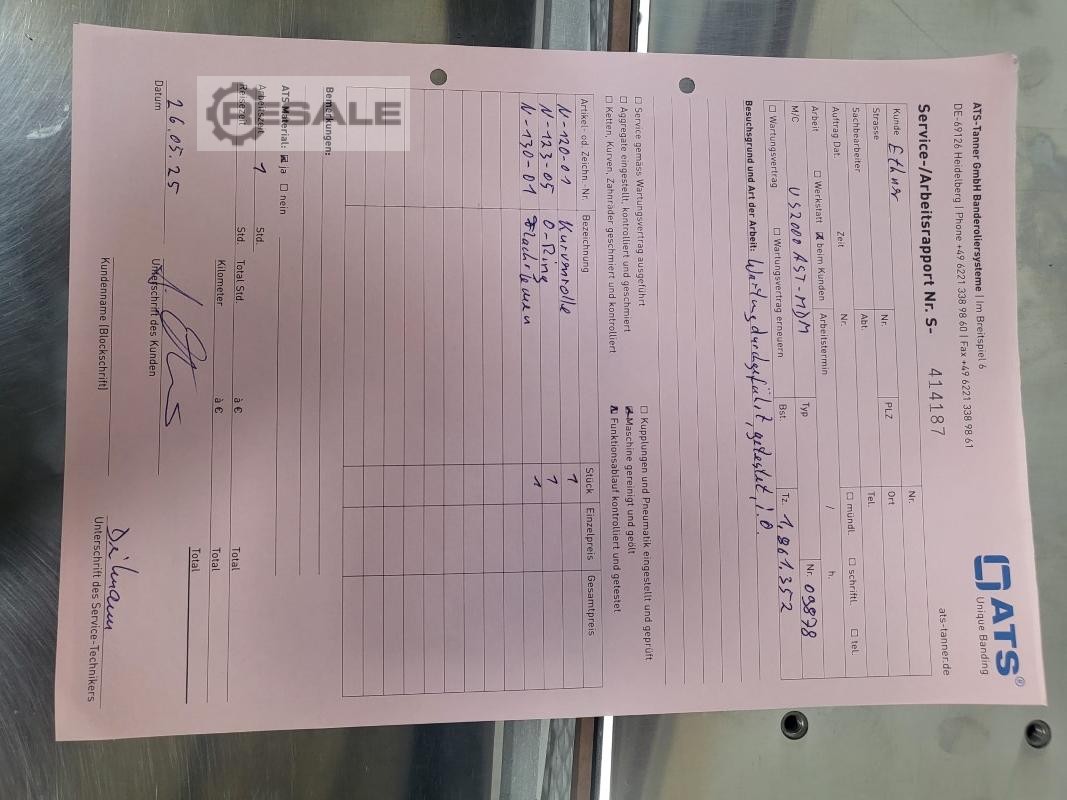 ATS-Tanner GmbH Banderoliersysteme | Im Breitspiel 6
DE-69126 Heidelberg | Phone +49 6221 338 98 60 | Fax +49 6221 338 98 61
ATS®
Unique Banding
ats-tanner.de
Service-/Arbeitsrapport Nr. S- 414187
Kunde Nr.
Strasse Nr. PLZ Ort
Sachbearbeiter Abt. Tel.
Auftrag Dat. Zeit Nr. ☐ mündl. ☐ schriftl. ☐ tel.
Arbeit ☐ Werkstatt ☒ beim Kunden Arbeitstermin / h.
M/C US2000 AST-MDM Typ Nr. 09878
☐ Wartungsvertrag ☐ Wartungsvertrag erneuern Bst. Tz. 1,861.352
Besuchsgrund und Art der Arbeit: Wartung durchgeführt, getestet, i.O.
☐ Service gemäss Wartungsvertrag ausgeführt ☐ Kupplungen und Pneumatik eingestellt und geprüft
☐ Aggregate eingestellt, kontrolliert und geschmiert ☒ Maschine gereinigt und geölt
☐ Ketten, Kurven, Zahnräder geschmiert und kontrolliert ☒ Funktionsablauf kontrolliert und getestet
Artikel- od. Zeichn. -Nr. Bezeichnung Stück Einzelpreis Gesamtpreis
N-120-01 Kurvenrolle 1
N-123-05 O-Ring 1
N-130-01 Flachriemen 1
Bemerkungen:
ATS-Material: ☒ ja ☐ nein
Arbeitszeit 1 Std.
Reisezeit Std. Total Std. à € Total
Kilometer à € Total
Total
26.05.25
Datum Unterschrift des Kunden
Kundenname (Blockschrift) Unterschrift des Service-Technikers
RESALE